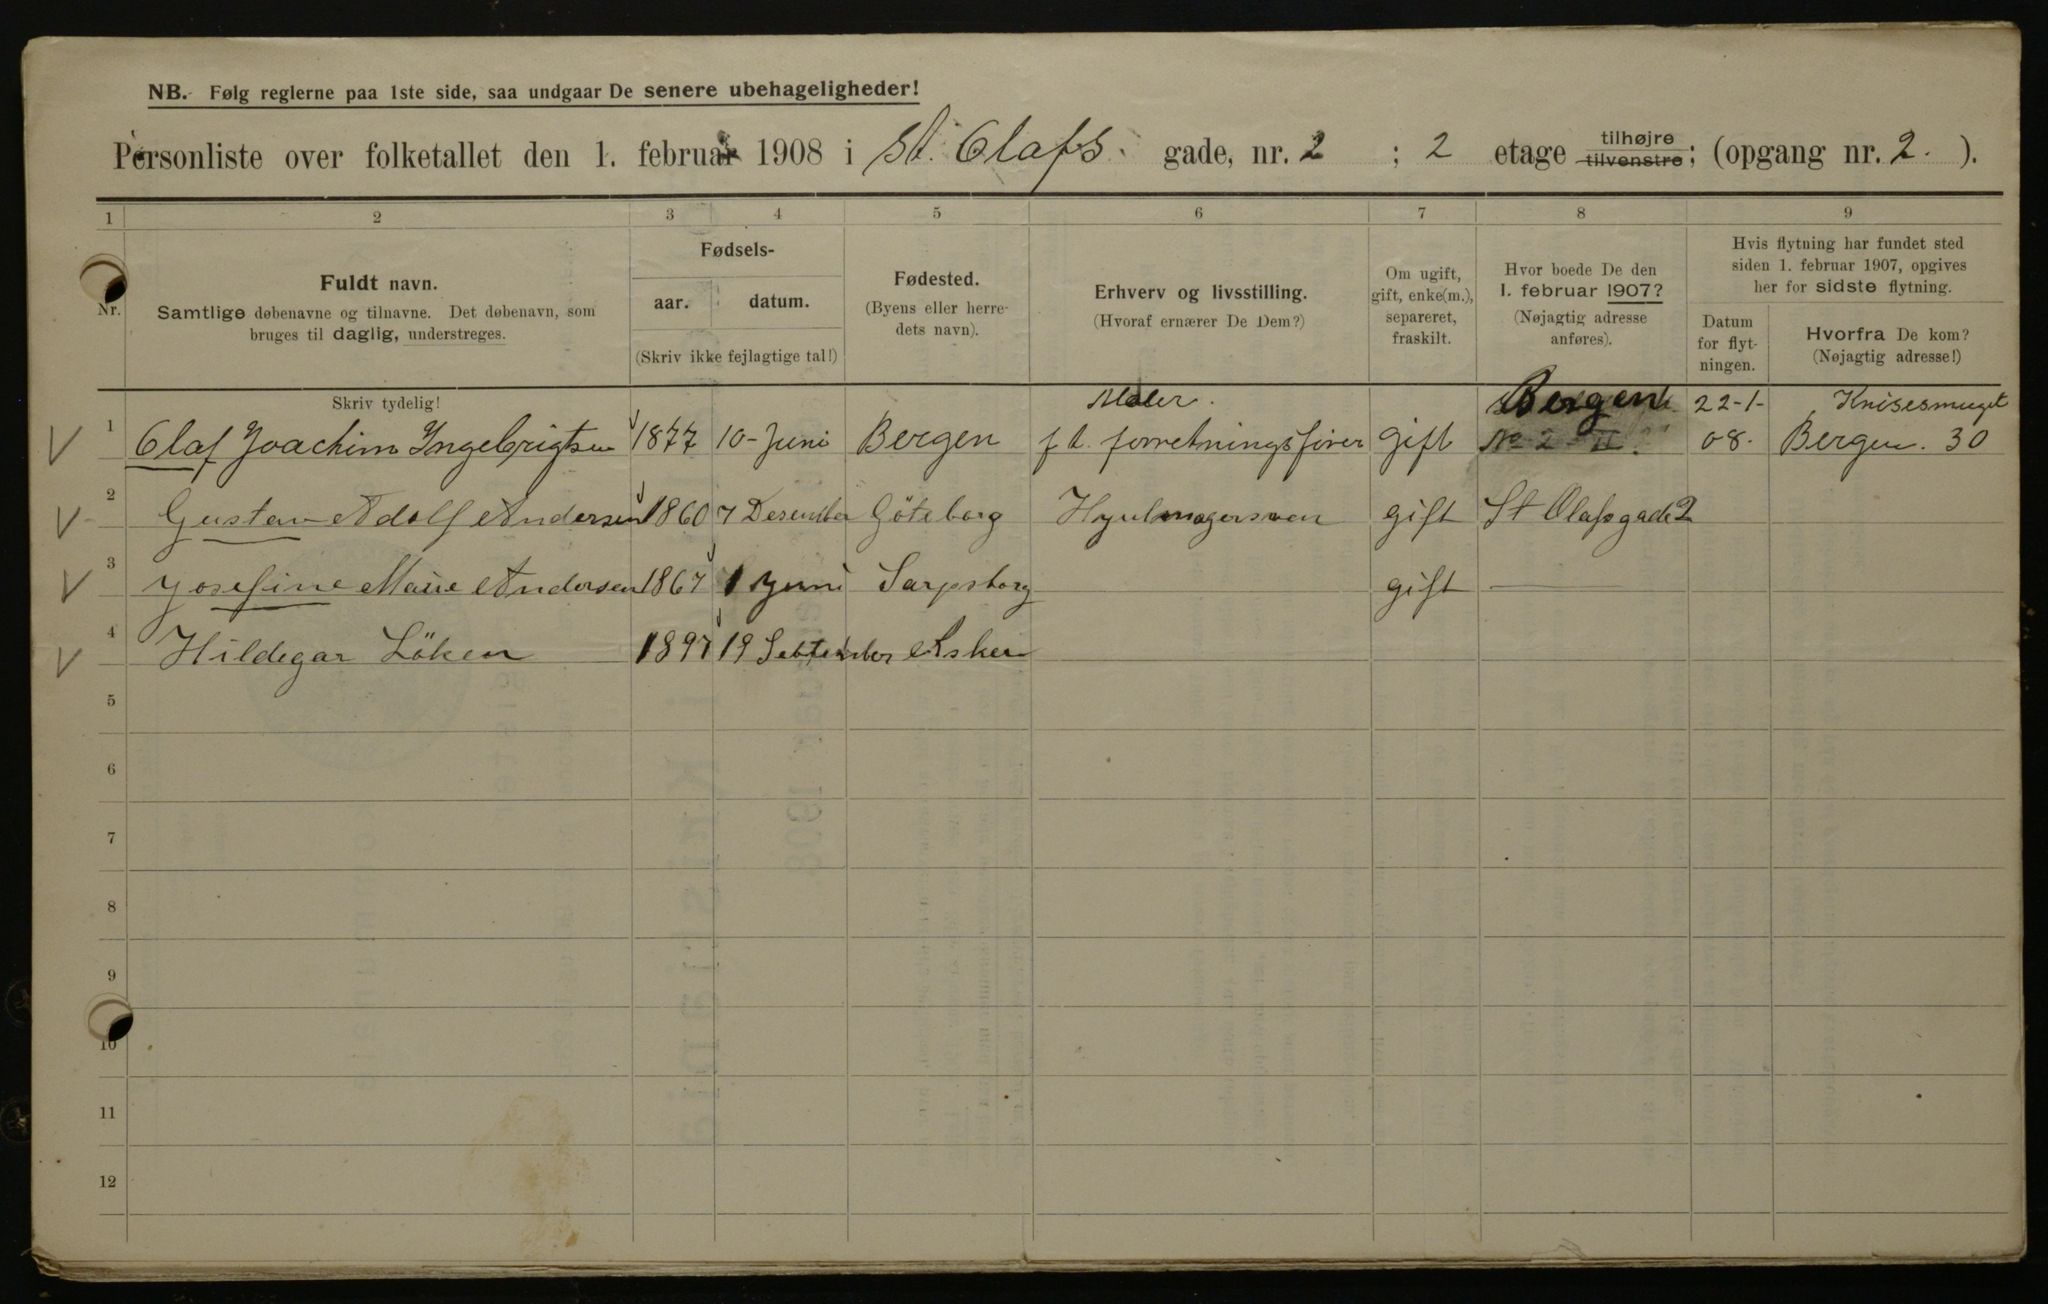 NB. Følg reglerne paa 1ste side, saa undgaar De senere ubehageligheder!
Personliste over folketallet den 1. februar 1908 i St. Olafs gade, nr. 2 ; 2 etage tilhøjre tilvenstre; (opgang nr. 2. ).
1 2 3 4 5 6 7 8 9
Nr.
Fuldt navn.
Samtlige døbenavne og tilnavne. Det døbenavn, som
bruges til daglig, understreges.
Fødsels-
aar. datum.
(Skriv ikke fejlagtige tal!)
Fødested.
(Byens eller herre-
dets navn).
Erhverv og livsstilling.
(Hvoraf ernærer De Dem?)
Om ugift,
gift, enke(m.),
separeret,
fraskilt.
Hvor boede De den
1. februar 1907?
(Nøjagtig adresse
anføres).
Hvis flytning har fundet sted
siden 1. februar 1907, opgives
her for sidste flytning.
Datum
for flyt-
ningen.
Hvorfra De kom?
(Nøjagtig adresse!)
Skriv tydelig!
Maler. Bergen 22-1- Knisesmuget
1 Olaf Joachim Ingebrigtsen 1877 10-Juni Bergen f.t. forretningsfører gift No 2 II. 08. Bergen. 30
2 Gustav Adolf Andersen 1860 7 Desember Göteborg Hjulmagersven gift St Olafsgade 2
3 Josefine Marie Andersen 1867 1 Juni Sarpsborg gift —
4 Hildegar Löken 1897 19 September Asker
5
6
7
8
9
10
11
12